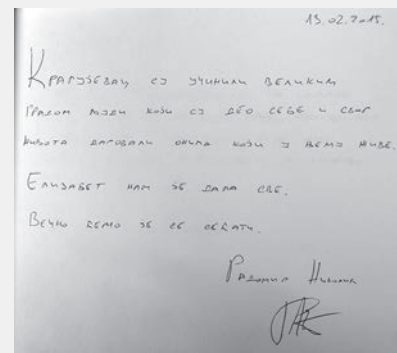 13.02.2015.
Крагујевац су учинили великим
градом људи који су део себе и свог
живота даровали онима који у њему живе.
Елизабет нам је дала све.
Вечно ћемо је се сећати.
Радомир Николић